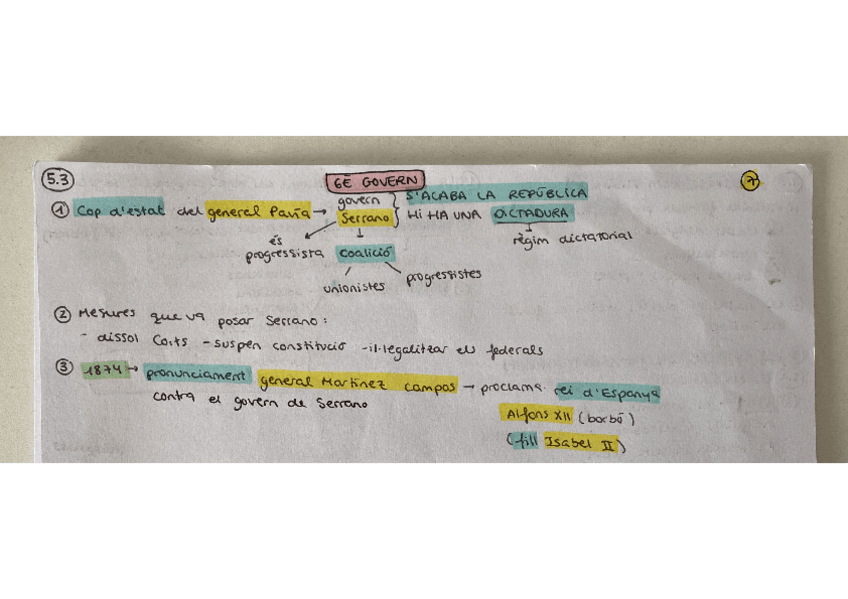 5.3
6È GOVERN
7
① Cop d'estat del general Pavía → govern Serrano } S'ACABA LA REPÚBLICA
HI HA UNA DICTADURA
règim dictatorial
és progressista
coalició
unionistes
progressistes
② Mesures que va posar Serrano:
- dissol Corts - suspèn constitució - il·legalitzar els federals
③ 1874 → pronunciament general Martínez Campos → proclama rei d'Espanya
contra el govern de Serrano
Alfons XII (borbó)
(fill Isabel II)